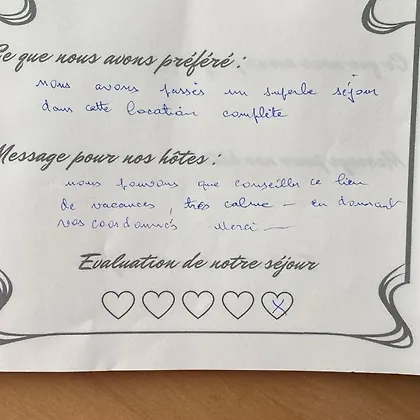 Ce que nous avons préféré :
nous avons passés un superbe séjour
dans cette location complète
Message pour nos hôtes :
nous pouvons que conseiller ce lieu
de vacances, très calme - en donnant
vos coordonnées Merci -
Evaluation de notre séjour
X